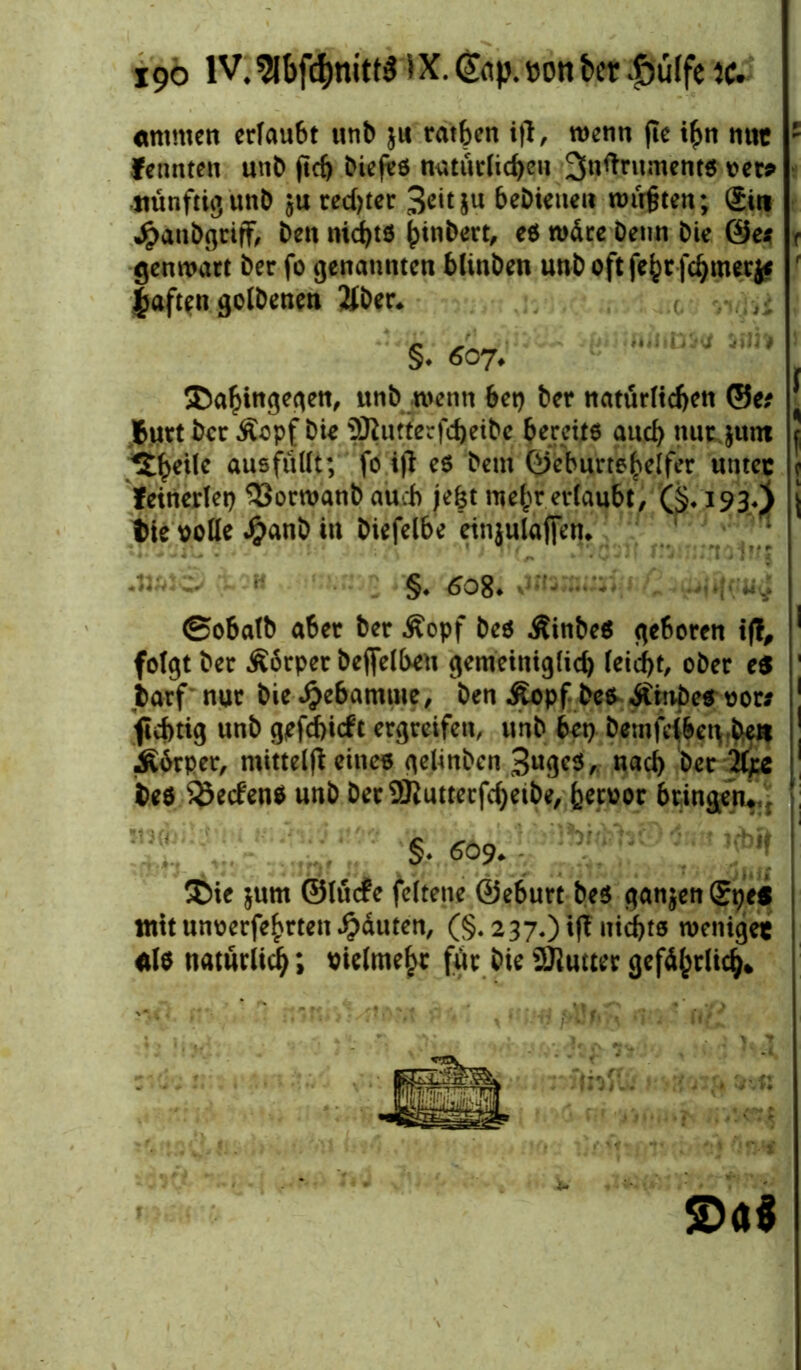 190 IV. Abschnitts IX. Cap. von der Hülfe ꝛc.
ammen erlaubt und zu rathen ist, wenn sie ihn nur
kennten und sich dieses natürlichen Instruments ver-
nünftig und zu rechter Zeit zu bedienen wüßten; Ein
Handgriff, den nichts hindert, es wäre denn die Ge-
genwart der so genannten blinden und oft sehr schmerz-
haften goldenen Ader.
§. 607.
Dahingegen, und wenn bey der natürlichen Ge-
burt der Kopf die Mutterscheide bereits auch nur zum
Theile ausfüllt; so ist es dem Geburtshelfer unter
keinerley Vorwand auch jetzt mehr erlaubt, (§. 193.)
die volle Hand in dieselbe einzulassen.
§. 608.
Sobald aber der Kopf des Kindes geboren ist,
folgt der Körper desselben gemeiniglich leicht, oder es
darf nur die Hebamme, den Kopf des Kindes vor-
sichtig und geschickt ergreifen, und bey demselben den
Körper, mittelst eines gelinden Zuges, nach der Axe
des Beckens und der Mutterscheide, hervor bringen.
§. 609.
Die zum Glücke seltene Geburt des ganzen Eyes
mit unversehrten Häuten, (§. 237.) ist nichts weniger
als natürlich; vielmehr für die Mutter gefährlich.
Das